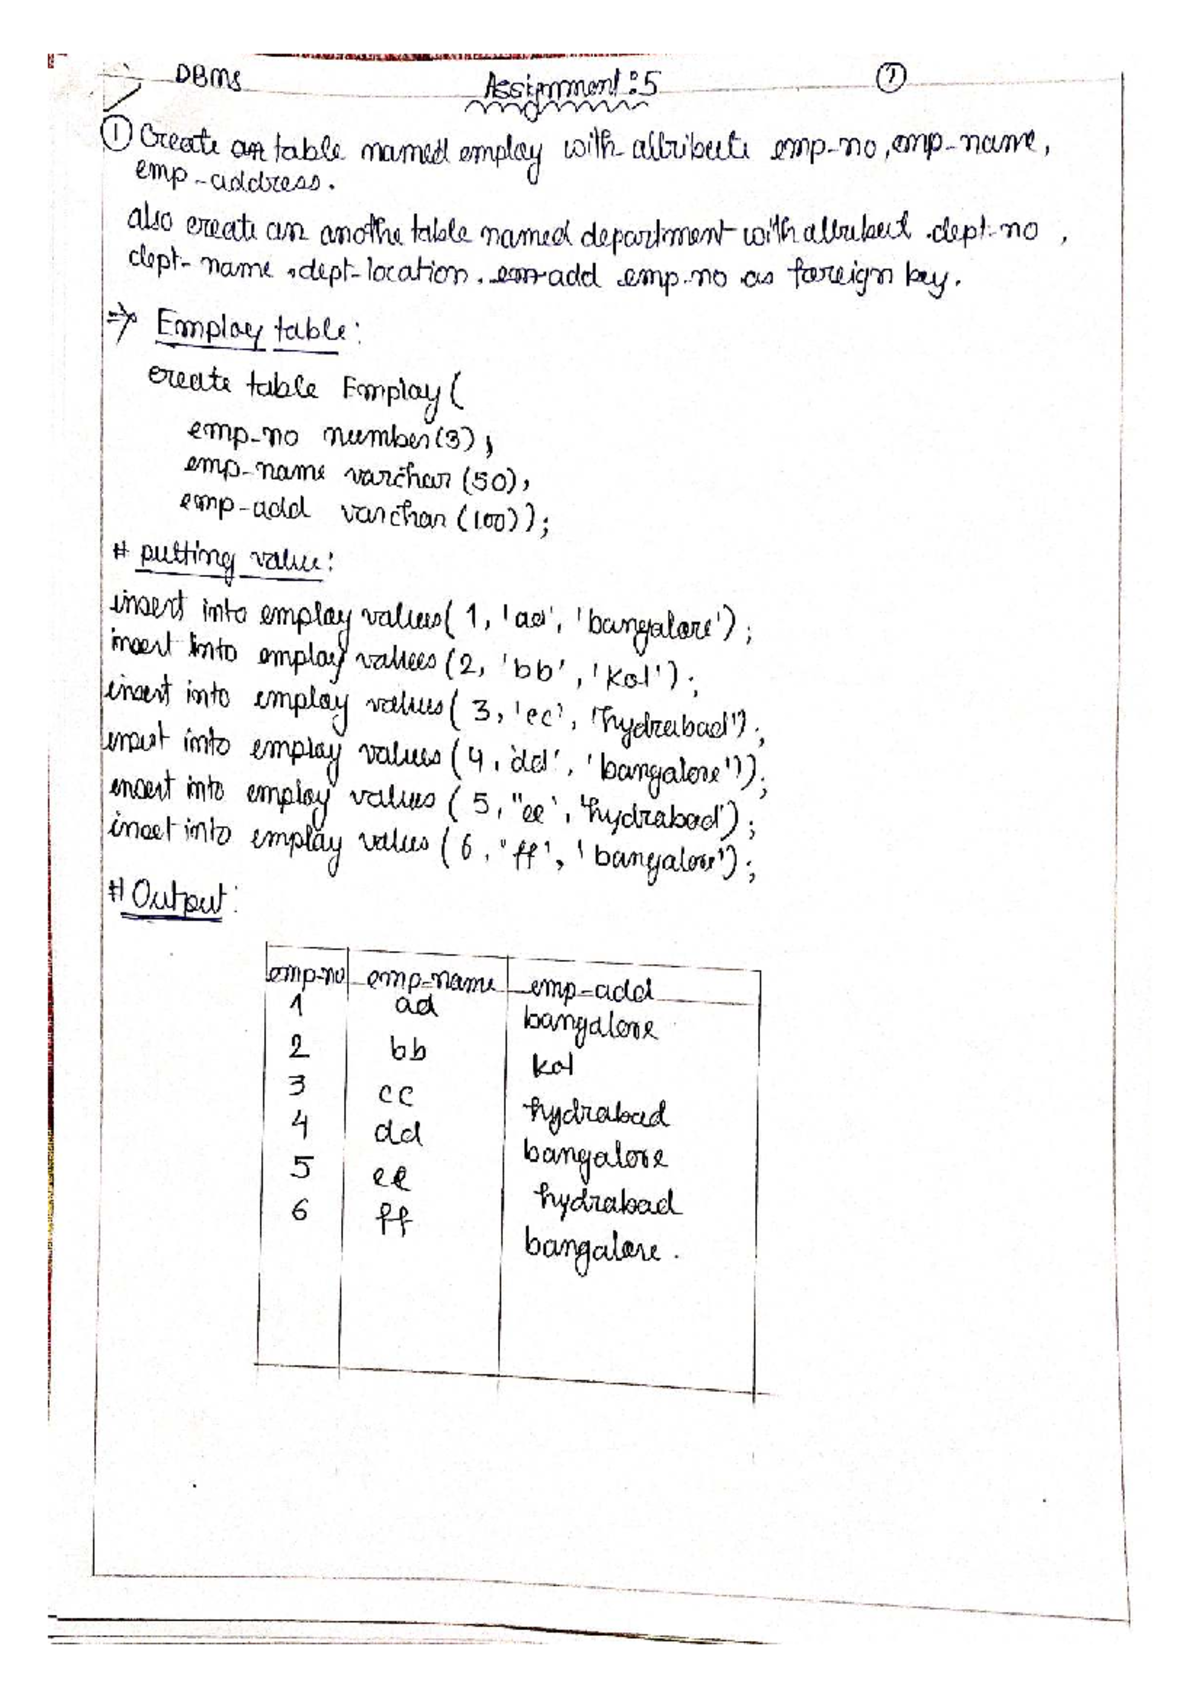 DBMS
Assignment:5
① Create an table named employ with attribute emp-no, emp-name,
emp-address.
also create an anothe table named department with attribut dept-no,
dept-name, dept-location. add emp-no as foreign key.
⇒ Employ table:
create table Employ(
emp-no number(3),
emp-name varchar (50),
emp-add varchar (100));
# putting value:
insert into employ values( 1, 'ad', 'bangalore');
insert into employ values (2, 'bb', 'kol');
insert into employ values( 3, 'cc', 'hydrabad');
insert into employ values (4, 'dd', 'bangalore'));
insert into employ values ( 5, "ee', 'hydrabad');
inset into employ values ( 6, "ff', 'bangalore');
# Output:
emp-no emp-name emp-add
1 ad bangalore
2 bb kol
3 cc hydrabad
4 dd bangalore
5 ee hydrabad
6 ff bangalore.